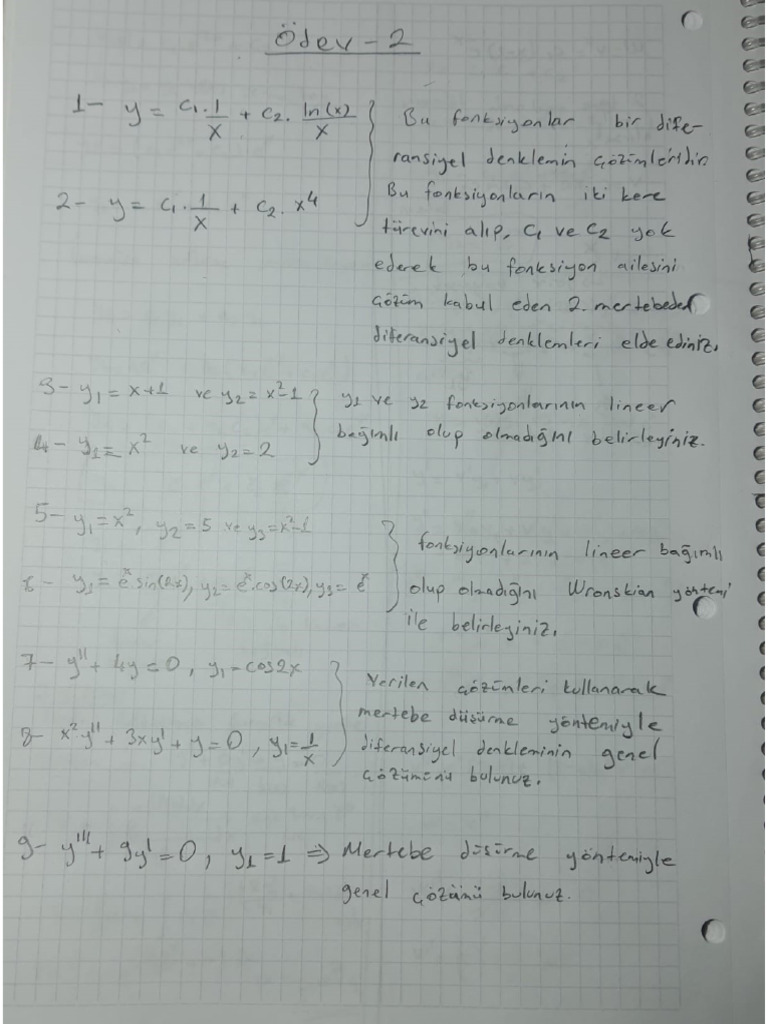 Ödev - 2
1- y = c₁.1/x + c₂. ln(x)/x
2- y = c₁.1/x + c₂. x⁴
Bu fonksiyonlar bir dife-
ransiyel denklemin çözümleridir
Bu fonksiyonların iki kere
türevini alıp, c₁ ve c₂ yok
ederek bu fonksiyon ailesini
çözüm kabul eden 2. mertebeden
diferansiyel denklemleri elde ediniz.
3- y₁ = x+1 ve y₂ = x²-1
4- y₁ = x² ve y₂ = 2
y₁ ve y₂ fonksiyonlarının lineer
bağımlı olup olmadığını belirleyiniz.
5- y₁ = x², y₂ = 5 ve y₃ = x²-1
6- y₁ = eˣ.sin(2x), y₂ = eˣ.cos(2x), y₃ = eˣ
fonksiyonlarının lineer bağımlı
olup olmadığını Wronskian yöntemi
ile belirleyiniz.
7- y'' + 4y = 0, y₁ = cos2x
8- x²y'' + 3xy' + y = 0, y₁ = 1/x
Verilen çözümleri kullanarak
mertebe düşürme yöntemiyle
diferansiyel denkleminin genel
çözümünü bulunuz.
9- y''' + 9y' = 0, y₁ = 1 ⇒ Mertebe düşürme yöntemiyle
genel çözümü bulunuz.